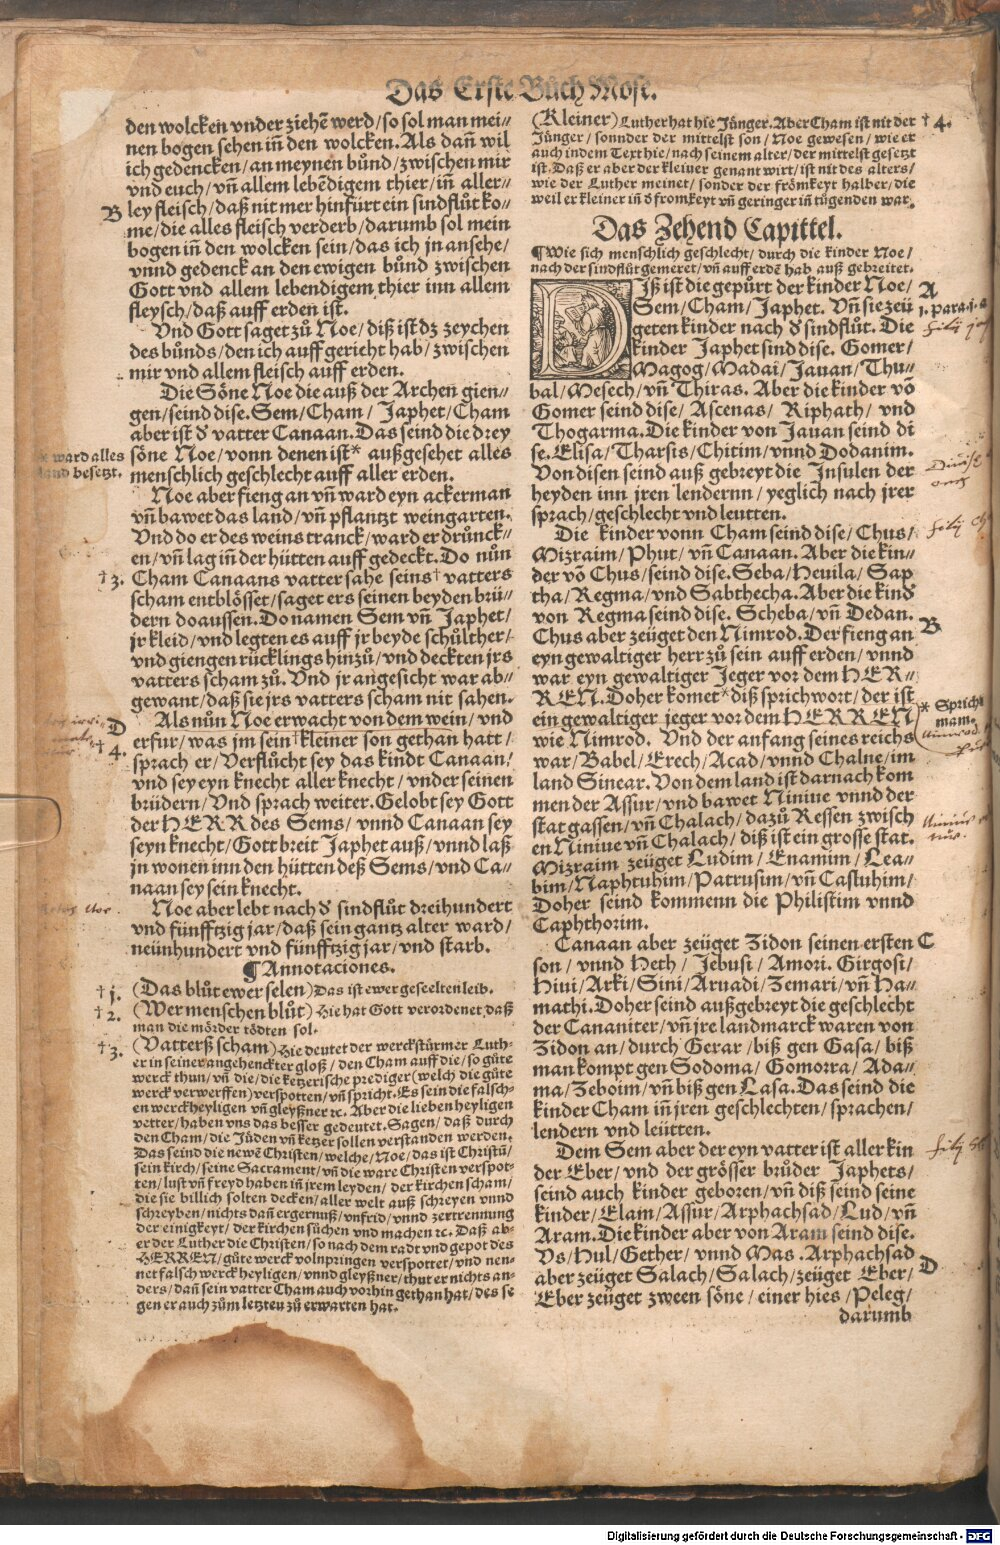 Das Erste Bůch Mose.
den wolcken vnder ziehẽ werd/so sol man mei⸗
nen bogen sehen iñ den wolcken. Als dañ wil
ich gedencken/an meynen bůnd/zwischen mir
vnd euch/vñ allem lebẽdigem thier/iñ aller⸗
B ley fleisch/daß nit mer hinfürt ein sindflůt ko⸗
me/die alles fleisch verderb/darumb sol mein
bogen iñ den wolcken sein/das ich jn ansehe/
vnnd gedenck an den ewigen bůnd zwischen
Gott vnd allem lebendigem thier inn allem
fleysch/daß auff erden ist.
Vnd Gott saget zů Noe/diß ist dz zeychen
des bůnds/den ich auff gericht hab/zwischen
mir vnd allem fleisch auff erden.
Die Söne Noe die auß der Archen gien⸗
gen/seind dise. Sem/Cham/ Japhet/Cham
aber ist d̕ vatter Canaan. Das seind die drey
* ward alles
land besetzt.
söne Noe/vonn denen ist* außgesehet alles
menschlich geschlecht auff aller erden.
Noe aber fieng an vñ ward eyn ackerman
vñ bawet das land/vñ pflantzt weingarten.
Vnd do er des weins tranck/ward er drůnck⸗
en/vñ lag iñ der hütten auff gedeckt. Do nůn
†3. Cham Canaans vatter sahe seins† vatters
scham entblösset/saget ers seinen beyden brü⸗
dern doaussen. Do namen Sem vñ Japhet/
jr kleid/vnd legten es auff jr beyde schůlther/
vnd giengen rücklings hinzů/vnd deckten jrs
vatters scham zů. Vnd jr angesicht war ab⸗
gewant/daß sie jrs vatters scham nit sahen.
D Als nůn Noe erwacht von dem wein/vnd
†4. erfur/was jm sein†kleiner son gethan hatt/
sprach er/Verflůcht sey das kindt Canaan/
vnd sey eyn knecht aller knecht/vnder seinen
brüdern/Vnd sprach weiter. Gelobt sey Gott
der HERR des Sems/vnnd Canaan sey
seyn knecht/Gott breit Japhet auß/vnnd laß
jn wonen inn den hütten deß Sems/vnd Ca⸗
naan sey sein knecht.
Noe aber lebt nach d̕ sindflůt dreihundert
vnd fünfftzig jar/daß sein gantz alter ward/
neünhundert vnd fünfftzig jar/vnd starb.
¶Annotaciones.
†1. (Das blůt ewer selen) Das ist ewer geseelten leib.
†2. (Wer menschen blůt) Hie hat Gott verordenet/daß
man die mörder tödten sol.
†3. (Vatterß scham) Hie deutet der werckstürmer Luth⸗
er in seiner angehenckter gloß/den Cham auff die/so güte
werck thun/vñ die/die ketzerische prediger (welch die güte
werck verwerffen) verspotten/vñ spricht. Es sein die falsch⸗
en werckheyligen vñ gleyßner ꝛc. Aber die lieben heyligen
vetter/haben vns das besser gedeutet. Sagen/daß durch
den Cham/die Jüden vñ ketzer sollen verstanden werden.
Das seind die newẽ Christen/welche/Noe/das ist Christũ/
sein kirch/seine Sacrament/vñ die ware Christen verspot⸗
ten/lust vñ freyd haben iñ jrem leyden/der kirchen scham/
die sie billich solten decken/aller welt auß schreyen vnnd
schreyben/nichts dañ ergernuß/vnfrid/vnnd zertrennung
der einigkeyt/der kirchen süchen vnd machen ꝛc. Daß ab⸗
er der Luther die Christen/so nach dem radt vnd gepot des
HERREN/güte werck volnpringen verspottet/vnd nen⸗
net falsch werckheyligen/vnnd gleyßner/thut er nichts an⸗
ders/dañ sein vatter Cham auch vorhin gethan hat/des se
gen er auch zům letzten zů erwarten hat.
(Kleiner) Luther hat hie Jünger. Aber Cham ist nit der †4.
Jünger/sonnder der mittelst son/Noe gewesen/wie er
auch in dem Text hie/nach seinem alter/der mittelst gesetzt
ist. Daß er aber der kleiner genant wirt/ist nit des alters/
wie der Luther meinet/sonder der frömkeyt halber/die
weil er kleiner iñ d̕ fromkeyt vñ geringer iñ tůgenden war.
Das Zehend Capittel.
¶Wie sich menschlich geschlecht/durch die kinder Noe/
nach der sindflůt gemeret/vñ auff erdẽ hab auß gebreitet.
DIß ist die gepürt der kinder Noe/ A
Sem/Cham/Japhet. Vñ sie zeü
geten kinder nach d̕ sindflůt. Die
kinder Japhet sind dise. Gomer/
Magog/Madai/Jauan/Thu⸗
bal/Mesech/vñ Thiras. Aber die kinder võ
Gomer seind dise/Ascenas/ Riphath/ vnd
Thogarma. Die kinder von Jauan seind di
se. Elisa/Tharsis/Chitim/vnnd Dodanim.
Von disen seind auß gebreyt die Insulen der
heyden inn jren lendernn/yeglich nach jrer
sprach/geschlecht vnd leutten.
Die kinder vonn Cham seind dise/Chus/
Mizraim/Phut/vñ Canaan. Aber die kin⸗
der võ Chus/seind dise. Seba/Heuila/Sap
tha/Regma/vnd Sabthecha. Aber die kind̕
von Regma seind dise. Scheba/vñ Dedan. B
Chus aber zeüget den Nimrod. Der fieng an
eyn gewaltiger herr zů sein auff erden/vnnd
war eyn gewaltiger Jeger vor dem HER⸗
REN. Doher komet*diß sprichwort/der ist
* Sprich
mam.
ein gewaltiger jeger vor dem HERREN
wie Nimrod. Vnd der anfang seines reichs
war/Babel/Erech/Acad/vnnd Chalne/im
land Sinear. Von dem land ist darnach kom
men der Assur/vnd bawet Niniue vnnd der
stat gassen/vñ Chalach/dazů Ressen zwisch
en Niniue vñ Chalach/diß ist ein grosse stat.
Mizraim zeüget Ludim/Enamim/Lea⸗
bim/Naphtuhim/Patrusim/vñ Castuhim/
Doher seind kommenn die Philistim vnnd
Caphthorim.
Canaan aber zeüget Zidon seinen ersten C
son/vnnd Heth/ Jebusi/Amori. Girgosi/
Hiui/Arki/Sini/Aruadi/Zemari/vñ Ha⸗
mathi. Doher seind außgebreyt die geschlecht
der Cananiter/vñ jre landmarck waren von
Zidon an/durch Gerar/biß gen Gasa/biß
man kompt gen Sodoma/Gomorra/Ada⸗
ma/Zeboim/vñ biß gen Lasa. Das seind die
kinder Cham iñ jren geschlechten/sprachen/
lendern vnd leütten.
Dem Sem aber der eyn vatter ist aller kin
der Eber/vnd der grösser brůder Japhets/
seind auch kinder geboren/vñ diß seind seine
kinder/Elam/Assur/Arphachsad/Lud/vñ
Aram. Die kinder aber von Aram seind dise.
Vs/Hul/Gether/vnnd Mas. Arphachsad
aber zeüget Salach/Salach/zeüget Eber/ D
Eber zeüget zween söne/einer hies/Peleg/
darumb
Digitalisierung gefördert durch die Deutsche Forschungsgemeinschaft - DFG